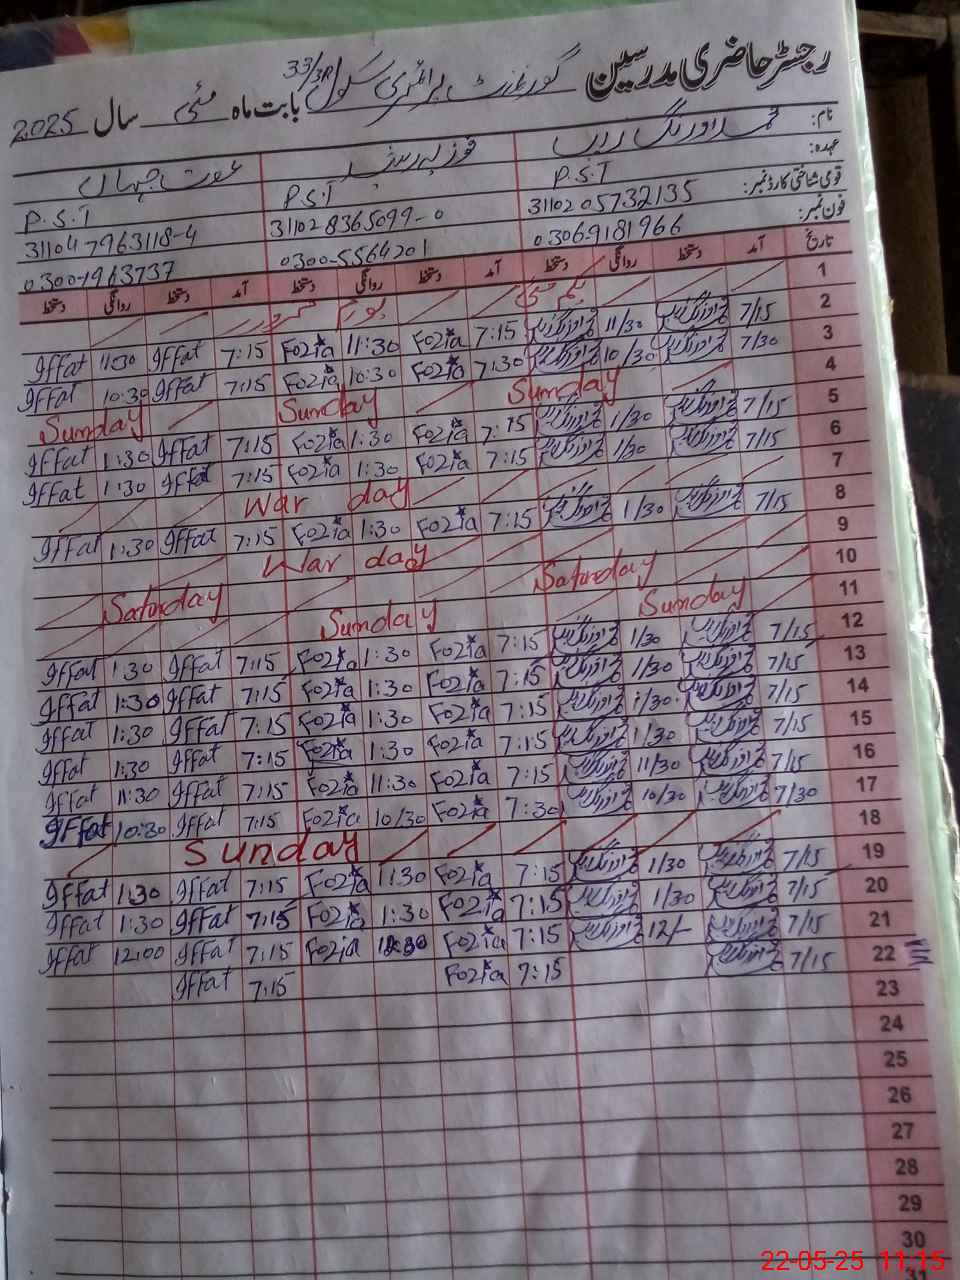 رجسٹر حاضری مدرسین گورنمنٹ پرائمری سکول 33/3R بابت ماہ مئی سال 2025
نام: محمد اورنگ زیب فوزیہ عفت جہاں
عہدہ: P.S.T P.S.T P.S.T
قومی شناختی کارڈ نمبر: 31102 05732135 31102 8365099-0 31104 7963118-4
فون نمبر: 03069181966 0300-5564201 0300-7963737
تاریخ آمد دستخط روانگی دستخط آمد دستخط روانگی دستخط آمد دستخط روانگی دستخط
1 یکم مئی
2 7/15 11/30 7:15 Fozia 11:30 Fozia 7:15 Iffat 11:30 Iffat
3 7/30 10/30 7:30 Fozia 10:30 Fozia 7:15 Iffat 10:30 Iffat
4 Sunday Sunday Sunday
5 7/15 1/30 7:15 Fozia 1:30 Fozia 7:15 Iffat 1:30 Iffat
6 7/15 1/30 7:15 Fozia 1:30 Fozia 7:15 Iffat 1:30 Iffat
7 War day
8 7/15 1/30 7:15 Fozia 1:30 Fozia 7:15 Iffat 1:30 Iffat
9 War day
10 Saturday Saturday
11 Sunday Sunday
12 7/15 1/30 7:15 Fozia 1:30 Fozia 7:15 Iffat 1:30 Iffat
13 7/15 1/30 7:15 Fozia 1:30 Fozia 7:15 Iffat 1:30 Iffat
14 7/15 1/30 7:15 Fozia 1:30 Fozia 7:15 Iffat 1:30 Iffat
15 7/15 1/30 7:15 Fozia 1:30 Fozia 7:15 Iffat 1:30 Iffat
16 7/15 11/30 7:15 Fozia 11:30 Fozia 7:15 Iffat 11:30 Iffat
17 7/30 10/30 7:30 Fozia 10/30 Fozia 7:15 Iffat 10:30 Iffat
18 Sunday
19 7/15 1/30 7:15 Fozia 1:30 Fozia 7:15 Iffat 1:30 Iffat
20 7/15 1/30 7:15 Fozia 1:30 Fozia 7:15 Iffat 1:30 Iffat
21 7/15 12/- 7:15 Fozia Fozia 7:15 Iffat 12:00 Iffat
22 7/15 7:15 Fozia 7:15 Iffat
23
24
25
26
27
28
29
30
31
22-05-25 11:15